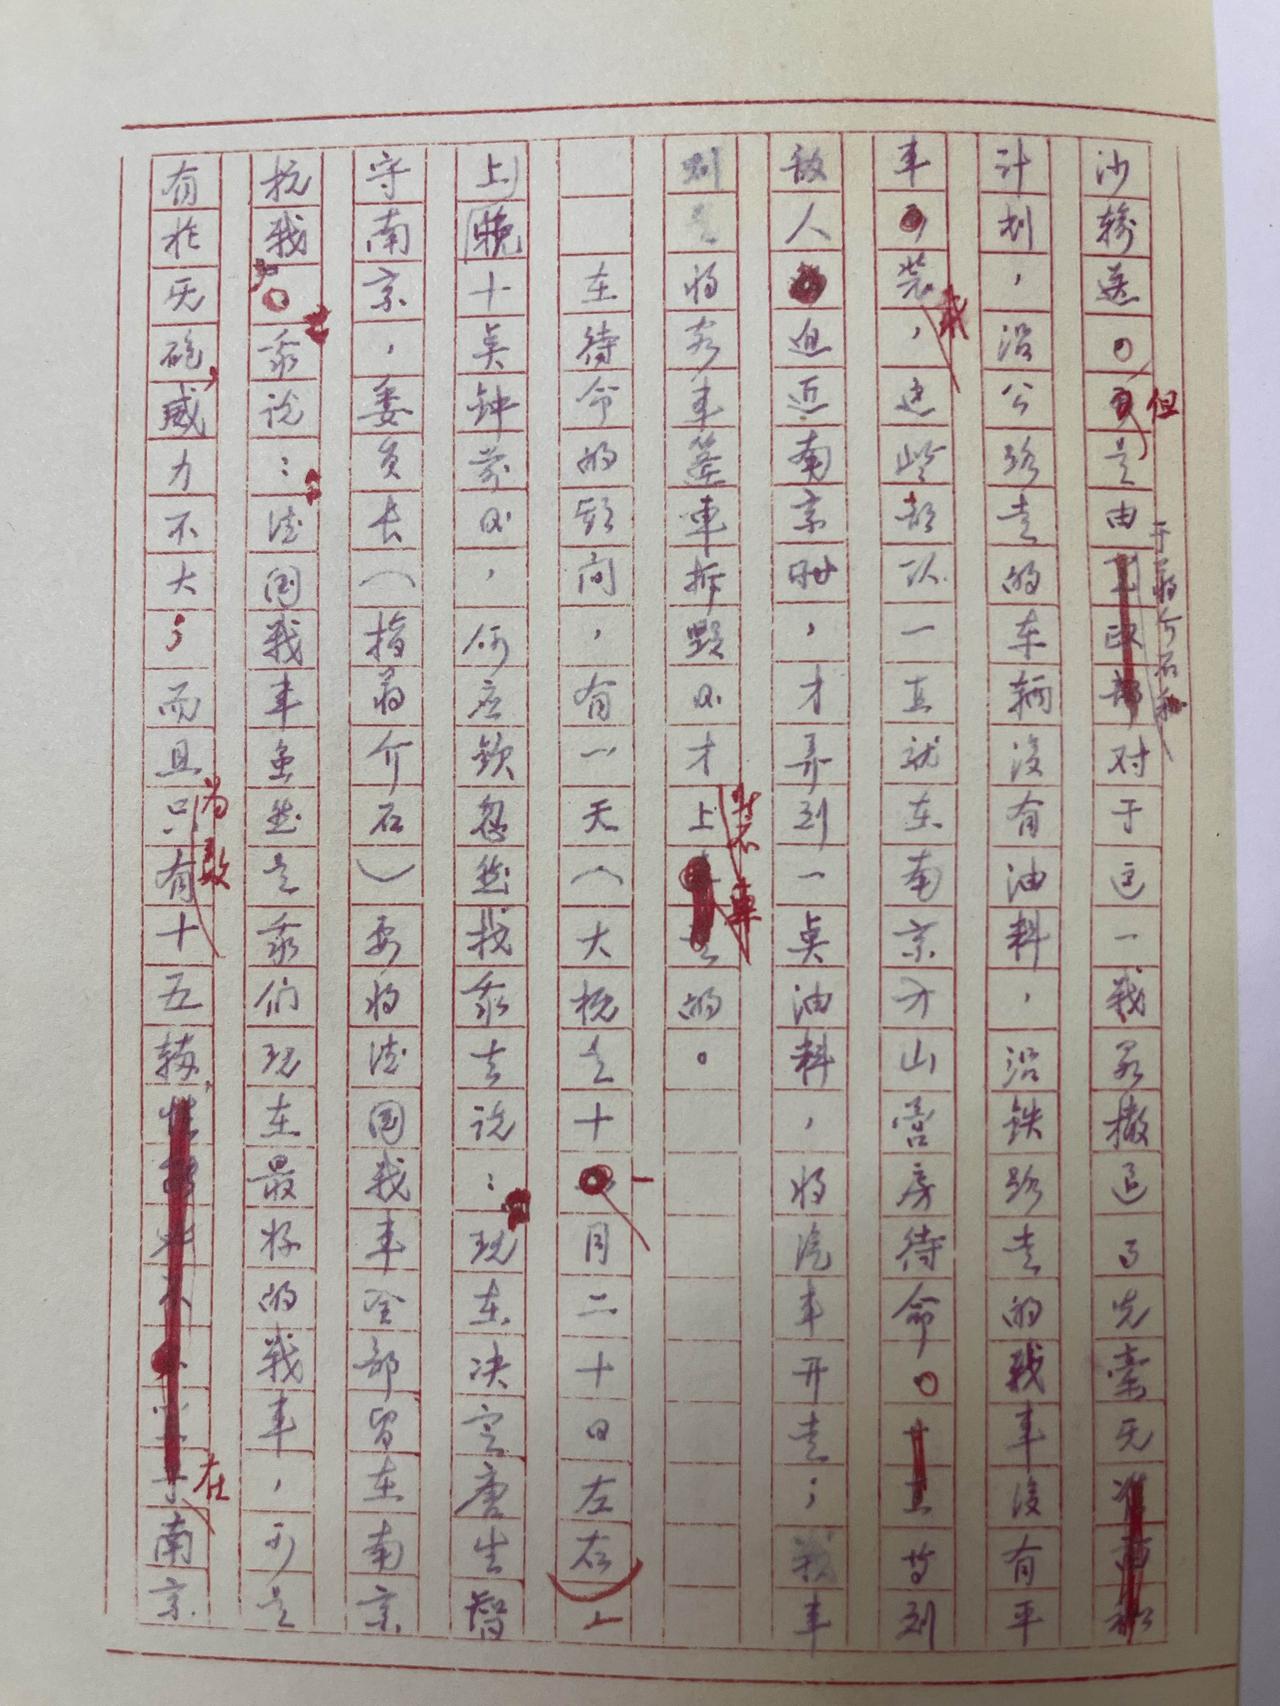 沙输送。但是由于蒋介石对于这一战略撤退事先毫无
计划，沿公路走的车辆没有油料，沿铁路走的战车没有平
车装载，这些部队一直就在南京方山营房待命。直等到
敌人迫近南京时，才弄到一点油料，将汽车开走；战车
则是将客车篷车拆毁后才上的。
在待命的期间，有一天（大概是十一月二十日左右）
晚上十点钟前后，何应钦忽然找我去说：现在决定唐生智
守南京，委员长（指蒋介石）要将德国战车全部留在南京
抗战。我说：德国战车虽然是我们现在最好的战车，可是
有枪无砲，威力不大；而且为数只有十五辆，在南京